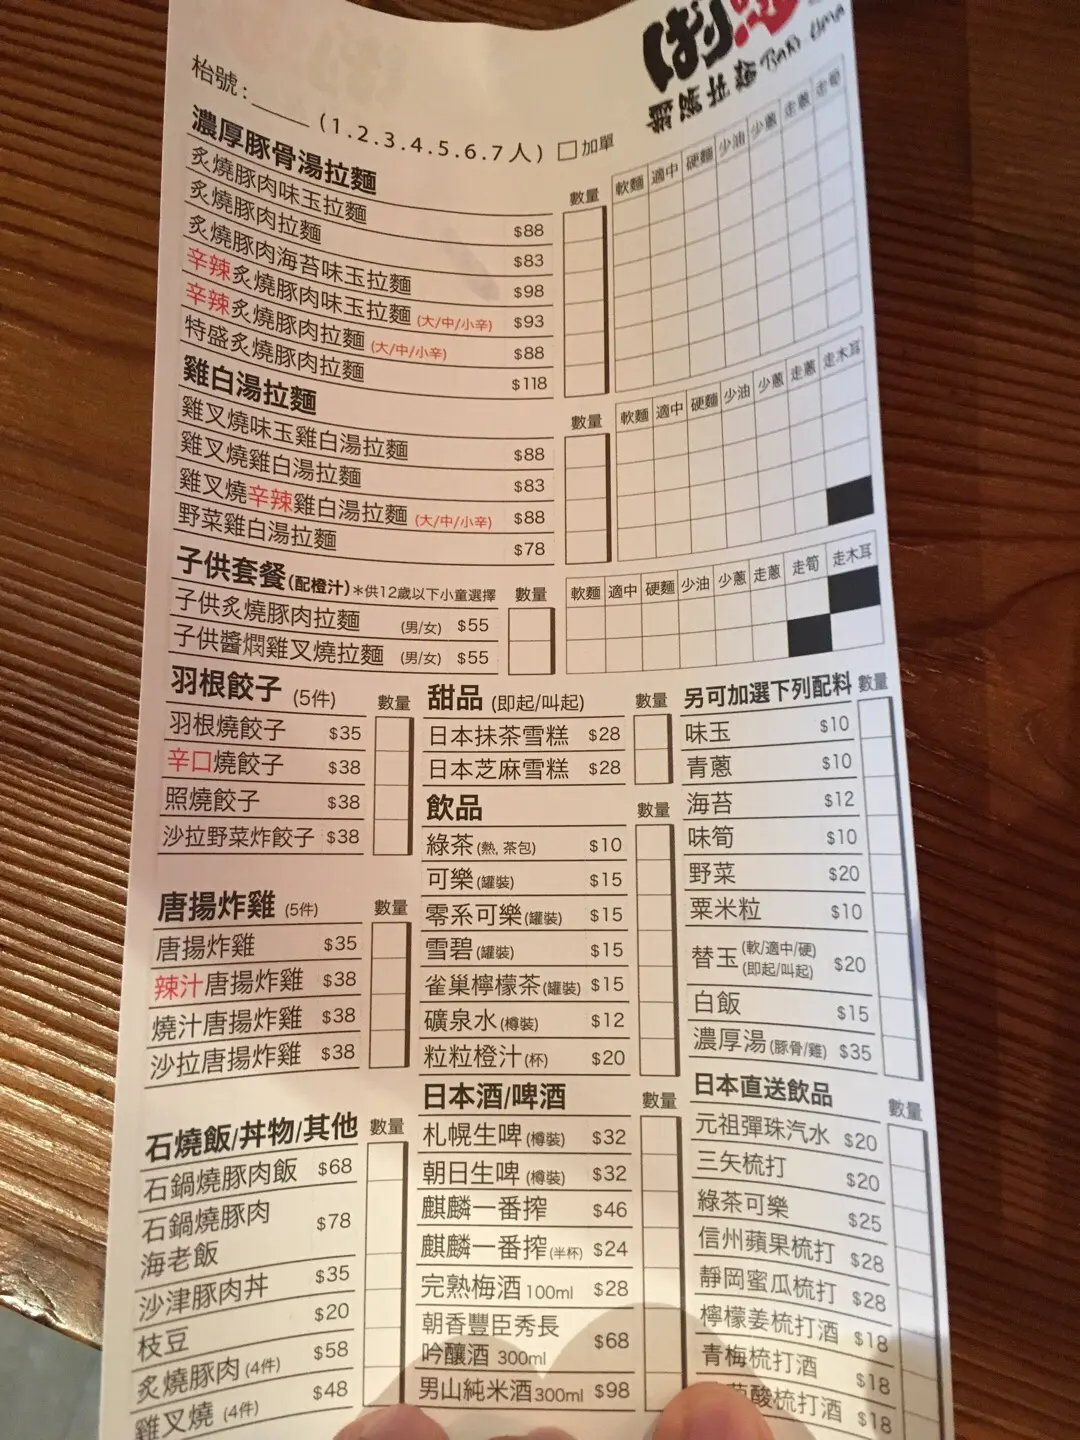 枱號：____ (1.2.3.4.5.6.7人) □加單
濃厚豚骨湯拉麵 數量 軟麵 適中 硬麵 少油 少蔥 走蔥 走筍
炙燒豚肉味玉拉麵 $88
炙燒豚肉拉麵 $83
炙燒豚肉海苔味玉拉麵 $98
辛辣炙燒豚肉味玉拉麵 (大/中/小辛) $93
辛辣炙燒豚肉拉麵 (大/中/小辛) $88
特盛炙燒豚肉拉麵 $118
雞白湯拉麵 數量 軟麵 適中 硬麵 少油 少蔥 走蔥 走木耳
雞叉燒味玉雞白湯拉麵 $88
雞叉燒雞白湯拉麵 $83
雞叉燒辛辣雞白湯拉麵 (大/中/小辛) $88
野菜雞白湯拉麵 $78
子供套餐(配橙汁) *供12歲以下小童選擇 數量 軟麵 適中 硬麵 少油 少蔥 走蔥 走筍 走木耳
子供炙燒豚肉拉麵 (男/女) $55
子供醬燜雞叉燒拉麵 (男/女) $55
羽根餃子 (5件) 數量
羽根燒餃子 $35
辛口燒餃子 $38
照燒餃子 $38
沙拉野菜炸餃子 $38
唐揚炸雞 (5件) 數量
唐揚炸雞 $35
辣汁唐揚炸雞 $38
燒汁唐揚炸雞 $38
沙拉唐揚炸雞 $38
石燒飯/丼物/其他 數量
石鍋燒豚肉飯 $68
石鍋燒豚肉
海老飯 $78
沙津豚肉丼 $35
枝豆 $20
炙燒豚肉 (4件) $58
雞叉燒 (4件) $48
甜品 (即起/叫起) 數量
日本抹茶雪糕 $28
日本芝麻雪糕 $28
飲品 數量
綠茶(熱, 茶包) $10
可樂(罐裝) $15
零系可樂(罐裝) $15
雪碧(罐裝) $15
雀巢檸檬茶(罐裝) $15
礦泉水(樽裝) $12
粒粒橙汁(杯) $20
日本酒/啤酒 數量
札幌生啤(樽裝) $32
朝日生啤(樽裝) $32
麒麟一番搾 $46
麒麟一番搾(半杯) $24
完熟梅酒 100ml $28
朝香豐臣秀長
吟釀酒 300ml $68
男山純米酒300ml $98
另可加選下列配料 數量
味玉 $10
青蔥 $10
海苔 $12
味筍 $10
野菜 $20
粟米粒 $10
替玉(軟/適中/硬)(即起/叫起) $20
白飯 $15
濃厚湯(豚骨/雞) $35
日本直送飲品 數量
元祖彈珠汽水 $20
三矢梳打 $20
綠茶可樂 $25
信州蘋果梳打 $28
靜岡蜜瓜梳打 $28
檸檬姜梳打酒 $18
青梅梳打酒 $18
酸梳打酒 $18